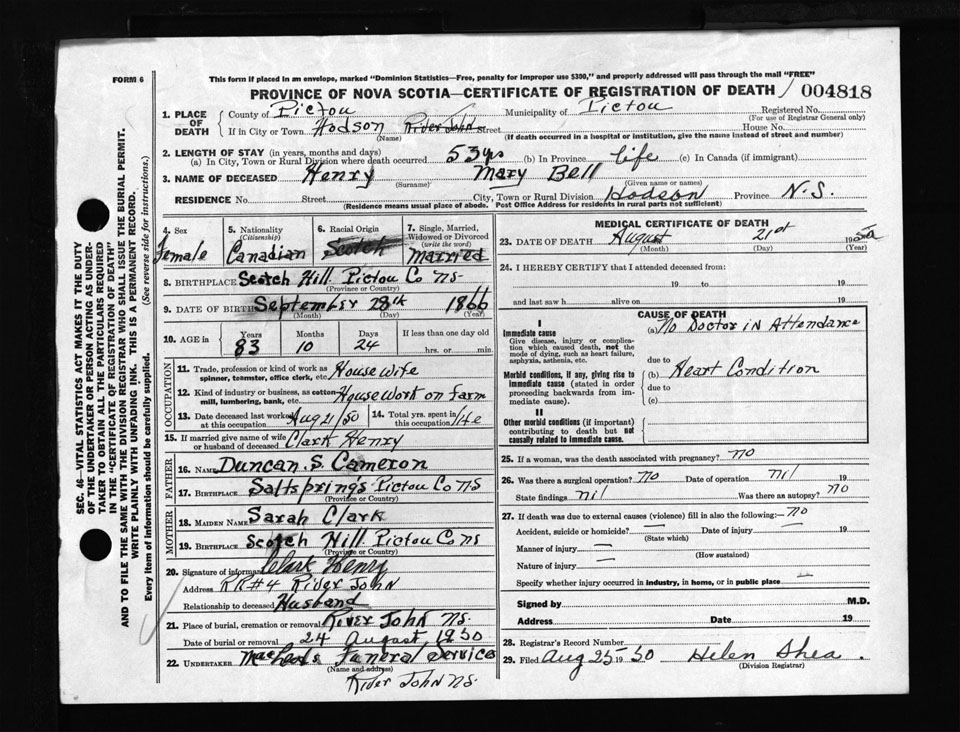 FORM 6
This form if placed in an envelope, marked "Dominion Statistics—Free, penalty for improper use $300," and properly addressed will pass through the mail "FREE"
PROVINCE OF NOVA SCOTIA—CERTIFICATE OF REGISTRATION OF DEATH 004818
SEC. 46—VITAL STATISTICS ACT MAKES IT THE DUTY
OF THE UNDERTAKER OR PERSON ACTING AS UNDER-
TAKER TO OBTAIN ALL THE PARTICULARS REQUIRED
IN THE "CERTIFICATE OF REGISTRATION OF DEATH"
AND TO FILE THE SAME WITH THE DIVISION REGISTRAR WHO SHALL ISSUE THE BURIAL PERMIT.
WRITE PLAINLY WITH UNFADING INK. THIS IS A PERMANENT RECORD.
Every item of information should be carefully supplied. (See reverse side for instructions.)
1. PLACE OF DEATH
County of Pictou Municipality of Pictou Registered No.
(For use of Registrar General only)
If in City or Town Hodson River John Street House No.
(Name) (If death occurred in a hospital or institution, give the name instead of street and number)
2. LENGTH OF STAY (in years, months and days)
(a) In City, Town or Rural Division where death occurred 53 yrs (b) In Province life (c) In Canada (if immigrant)
3. NAME OF DECEASED Henry Mary Bell
(Surname) (Given name or names)
RESIDENCE No. Street City, Town or Rural Division Hodson Province N.S.
(Residence means usual place of abode. Post Office Address for residents in rural parts not sufficient)
4. Sex
Female
5. Nationality
(Citizenship)
Canadian
6. Racial Origin
Scotch
7. Single, Married, Widowed or Divorced
(write the word)
Married
8. BIRTHPLACE Scotch Hill Pictou Co NS
(Province or Country)
9. DATE OF BIRTH September 28th 1866
(Month) (Day) (Year)
10. AGE in
Years Months Days If less than one day old
83 10 24 hrs. or min.
OCCUPATION
11. Trade, profession or kind of work as spinner, teamster, office clerk, etc. Housewife
12. Kind of industry or business, as cotton mill, lumbering, bank, etc. Housework on farm
13. Date deceased last worked at this occupation Aug 21/50
14. Total yrs. spent in this occupation life
15. If married give name of wife or husband of deceased Clark Henry
FATHER
16. NAME Duncan S. Cameron
17. BIRTHPLACE Saltsprings Pictou Co NS
(Province or Country)
MOTHER
18. MAIDEN NAME Sarah Clark
19. BIRTHPLACE Scotch Hill Pictou Co NS
(Province or Country)
20. Signature of informant Clark Henry
Address RR#4 River John
Relationship to deceased Husband
21. Place of burial, cremation or removal River John NS.
Date of burial or removal 24 August 1950
22. UNDERTAKER MacLeods Funeral Service
(Name and address)
River John NS.
MEDICAL CERTIFICATE OF DEATH
23. DATE OF DEATH August 21st 1950
(Month) (Day) (Year)
24. I HEREBY CERTIFY that I attended deceased from:
19 to 19
and last saw h alive on 19
CAUSE OF DEATH
I
Immediate cause
Give disease, injury or complication which caused death, not the mode of dying, such as heart failure, asphyxia, asthenia, etc.
(a) No Doctor in Attendance
due to
Morbid conditions, if any, giving rise to immediate cause (stated in order proceeding backwards from immediate cause).
(b) Heart Condition
due to
(c)
II
Other morbid conditions (if important) contributing to death but not causally related to immediate cause.
25. If a woman, was the death associated with pregnancy? no
26. Was there a surgical operation? No Date of operation nil 19
State findings nil Was there an autopsy? No
27. If death was due to external causes (violence) fill in also the following:— no
Accident, suicide or homicide? — Date of injury — 19
(State which)
Manner of injury —
(How sustained)
Nature of injury —
Specify whether injury occurred in industry, in home, or in public place —
Signed by M.D.
Address Date 19
28. Registrar's Record Number
29. Filed Aug 25 1950 Helen Shea.
(Division Registrar)